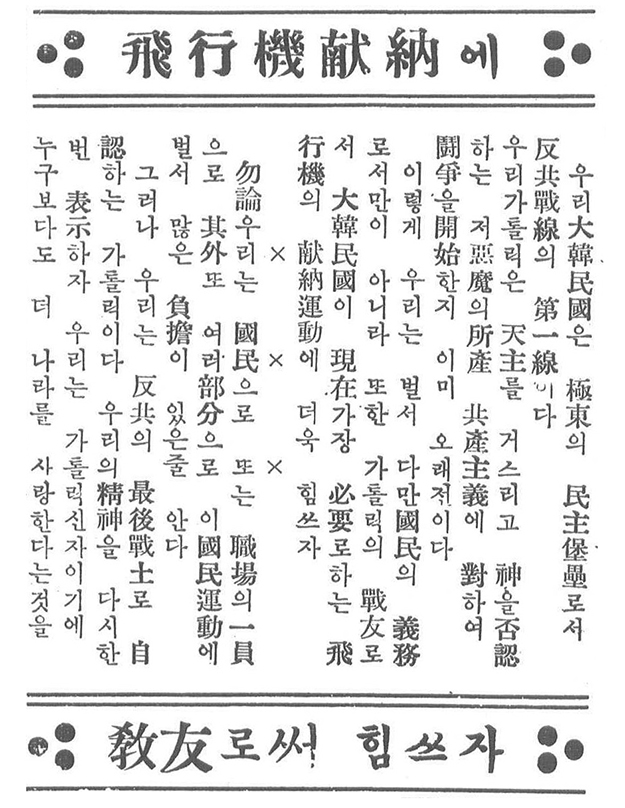 飛行機献納에
우리大韓民國은 極東의 民主堡壘로서
反共戰線의 第一線이다
우리가톨릭은 天主를 거스리고 神을否認
하는 저惡魔의所産 共産主義에 對하여
鬪爭을開始한지 이미 오래전이다
이렇게 우리는 벌서 다만國民의 義務
로서만이 아니라 또한 가톨릭의 戰友로
서 大韓民國이 現在가장 必要로하는 飛
行機의 献納運動에 더욱 힘쓰자
× × ×
勿論우리는 國民으로 또는 職場의一員
으로 其外또 여러部分으로 이國民運動에
벌서 많은 負擔이 있은줄 안다
그러나 우리는 反共의 最後戰士로 自
認하는 가톨릭이다 우리의精神을 다시한
번 表示하자 우리는 가톨릭신자이기에
누구보다도 더 나라를 사랑한다는것을
敎友로써 힘쓰자